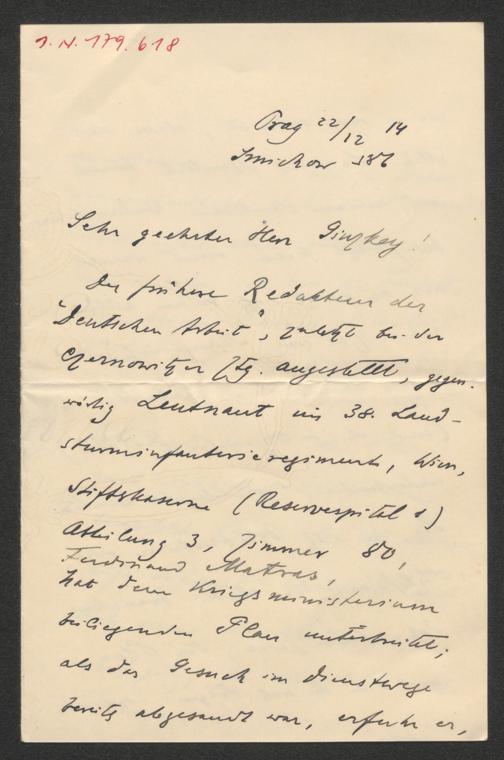 J.N. 179.618
Prag 22/12 14
Smichow 386
Sehr geehrter Herr Ginzkey!
Der frühere Redakteur der
"Deutschen Arbeit", zuletzt bei der
Czernowitzer Ztg. angestellt, gegen-
wärtig Leutnant im 38. Land-
sturminfanterieregiment, Wien,
Stiftskaserne (Reservespital 1)
Abteilung 3, Zimmer 80,
Ferdinand Matras,
hat dem Kriegsministerium
beiliegenden Plan unterbreitet;
als das Gesuch im Dienstwege
bereits abgesandt war, erfuhr er,